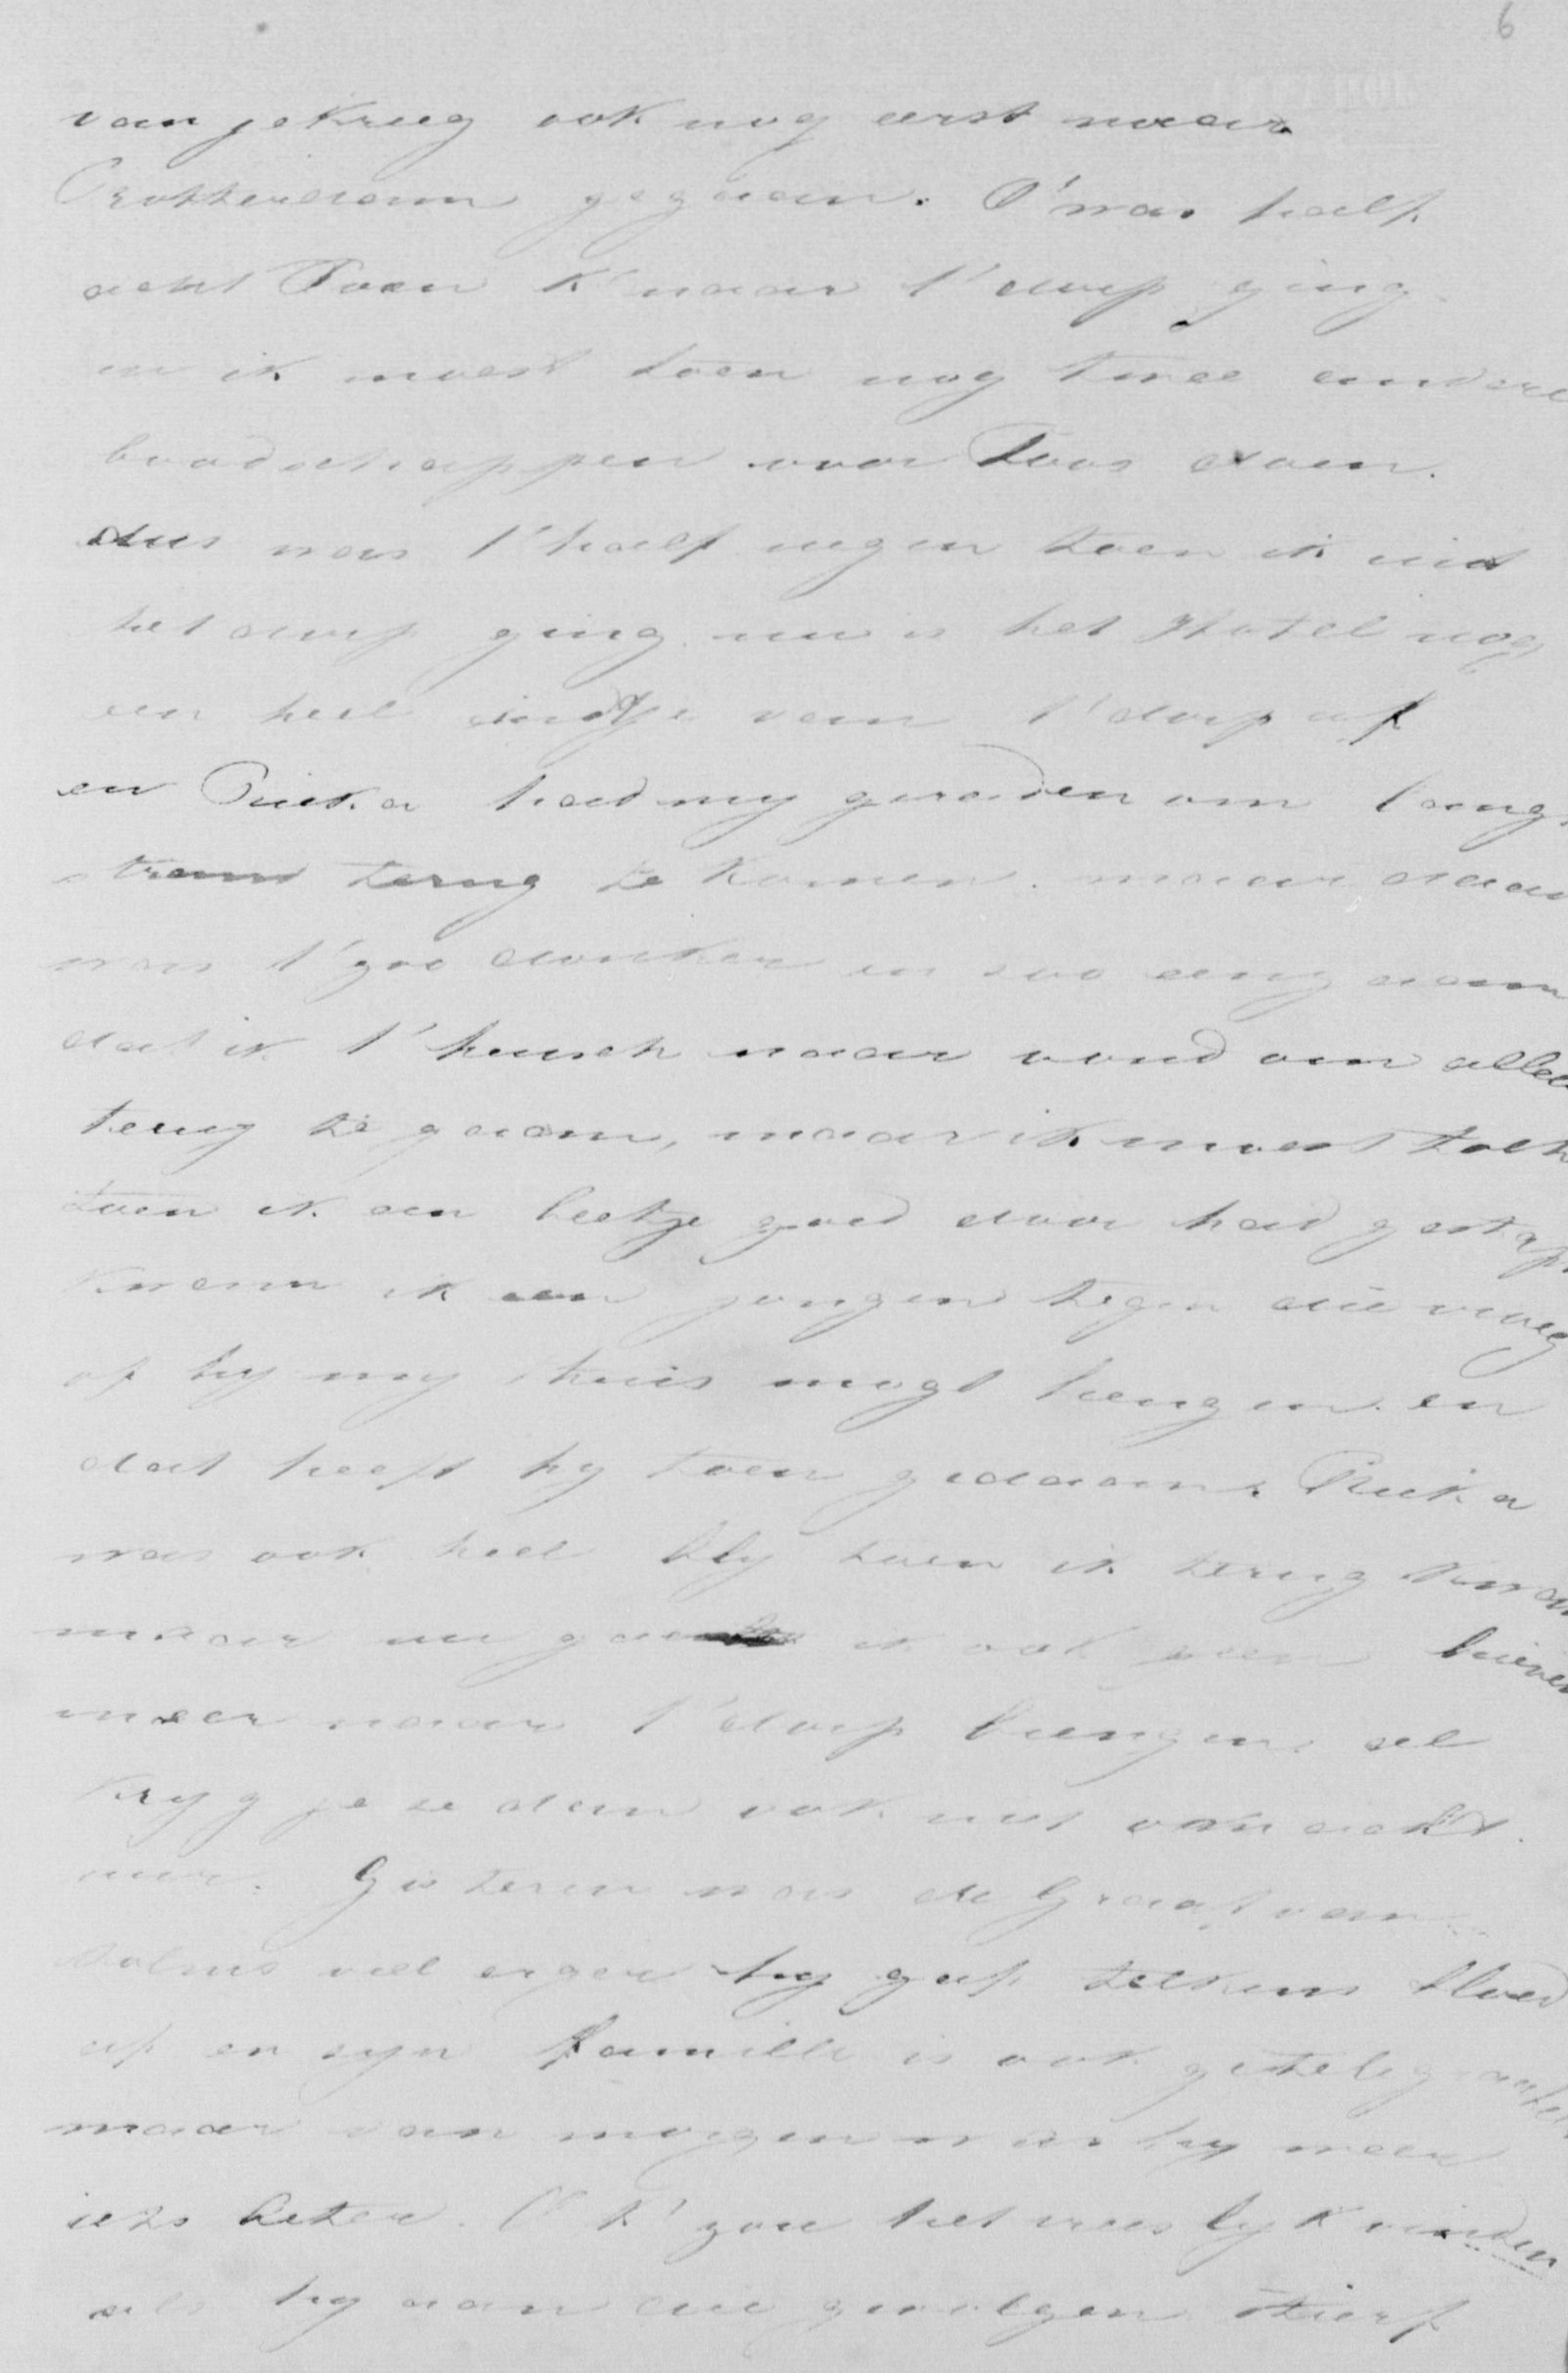 6
van je kreeg ook nog eerst naar
Rotterdam gegaan. T'was half
acht Toen K'naar t'dorp ging
en ik moest toen nog twee andere
boodschappen voor Toos doen.
dus was t'half negen toen ik uit
het dorp ging. nu is het Hotel nog
een heel eindtje van t'dorp af
en Rieka had my geraden om langs
strand terug te komen. maar daar
was t'zoo donker en zoo eenzaam
dat ik t'heusch naar vond om allee
terug te gaan, maar ik moest toch
toen ik een beetje goed door had gestap
kwam ik een jongen tegen die vroeg
of hy my thuis mogt brengen. en
dat heeft hy toen gedaan. Rieka
was ook heel bly toen ik terug kwam
maar nu ga ik ook geen brieven
meer naar t'dorp brengen. al
kryg je ze dan ook niet om acht
uur. Gisteren was de Graaf van
Solms veel erger hy gaf telkens bloed
op en zyn familie is ook getelegrafe
maar van morgen was hy weer
iets beter. O k'zou het vreeslyk vinden
als hy aan die gevolgen stierf